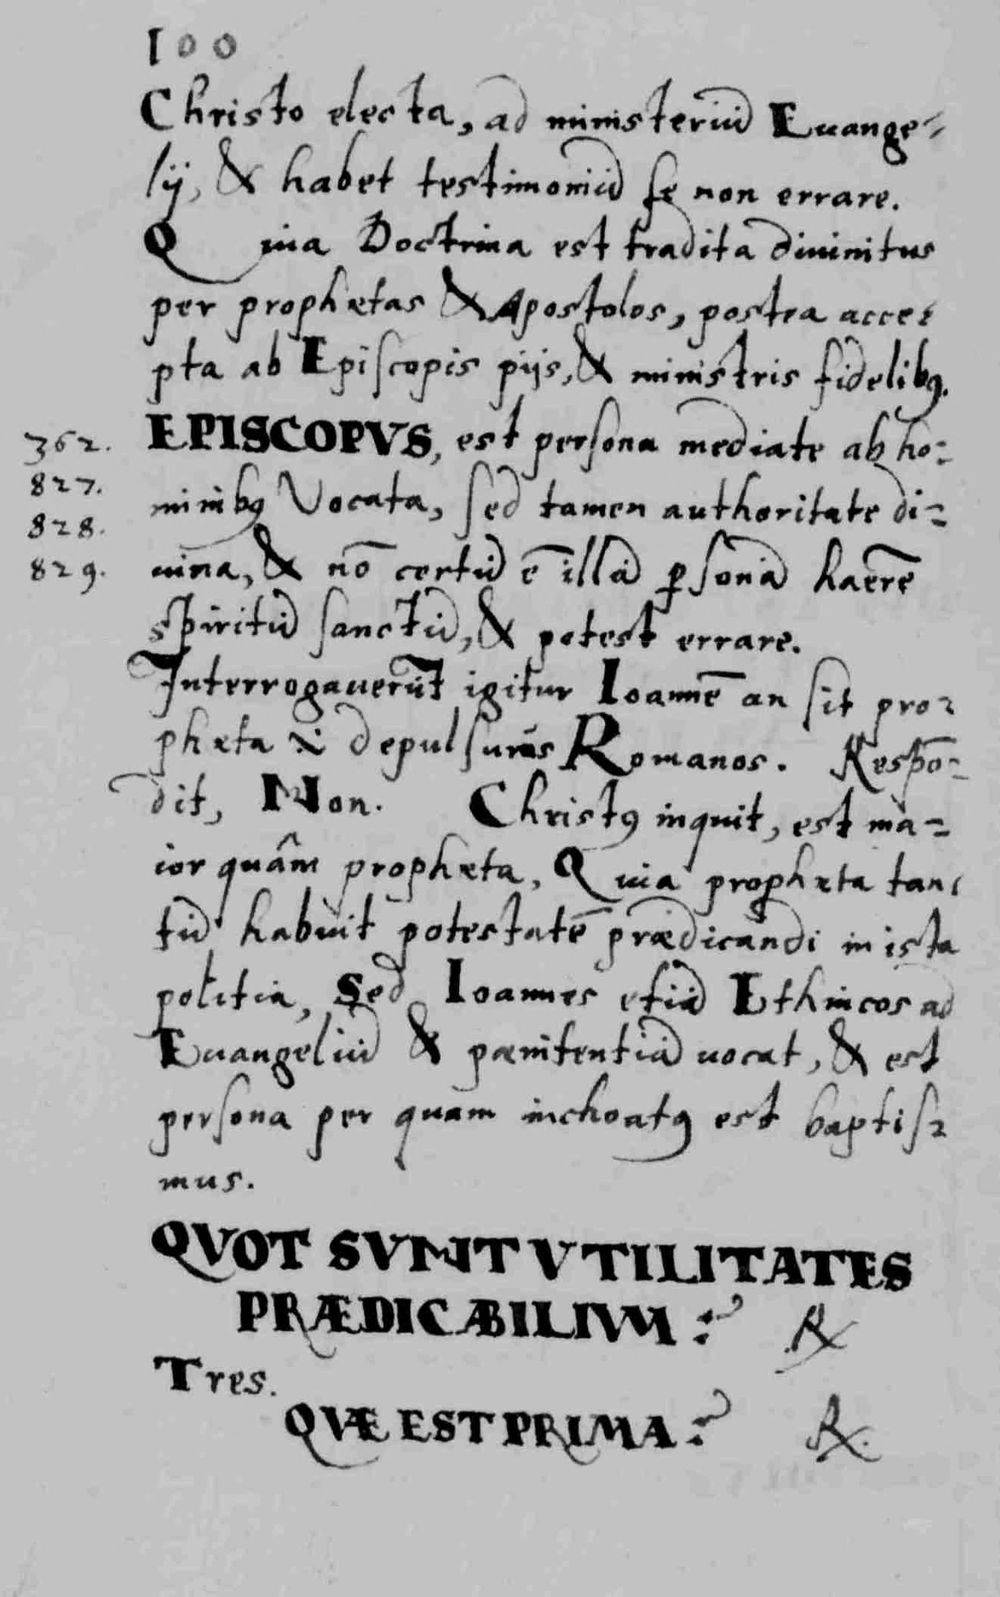 100
Christo electa, ad ministeriū Euange-
lij, & habet testimoniū se non errare.
Quia Doctrina est tradita diuinitus
per prophetas & Apostolos, postea acce-
pta ab Episcopis pijs, & ministris fidelibꝯ.
EPISCOPVS, est persona mediate ab ho-
362.
minibꝯ Vocata, sed tamen authoritate di-
827.
828.
uina, & nō certū ē illā ꝑsonā haerēre
829.
spiritū sanctū, & potest errare.
Interrogauerūt igitur Ioannē an sit pro-
phæta & depulsurus Romanos. Respō-
dit, Non. Christꝯ inquit, est ma-
ior quâm prophæta, Quia prophæta tan-
tū habuit potestatē prædicandi in ista
politia, Sed Ioannes etiā Ethnicos ad
Euangeliū & pœnitentiā uocat, & est
persona per quam inchoatꝯ est baptis-
mus.
QVOT SVNT VTILITATES
PRÆDICABILIVM? ℞
Tres.
QVÆ EST PRIMA? ℞.